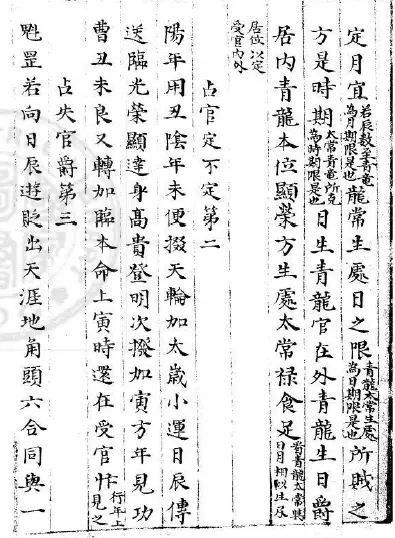 定月宜若辰數至青竜為月期限是也龍常生處日之限青龍太常生處為日期限是也所賊之
方是時期太常青竜所克為時期限是也日生青龍官在外青龍生日爵
居內青龍本位顯榮方生處太常祿食足皆青龍太常與日月相似生及
居位以定受官內外
占官定不定第二
陽年用丑陰年未便掇天輪加太歲小運日辰傳
送臨光榮顯達身高貴登明次撥加寅方年見功
曹丑未良又轉加臨本命上寅時還在受官忻行年上見之
占失官爵第三
魁罡若向日辰遊貶出天涯地角頭六合同輿一